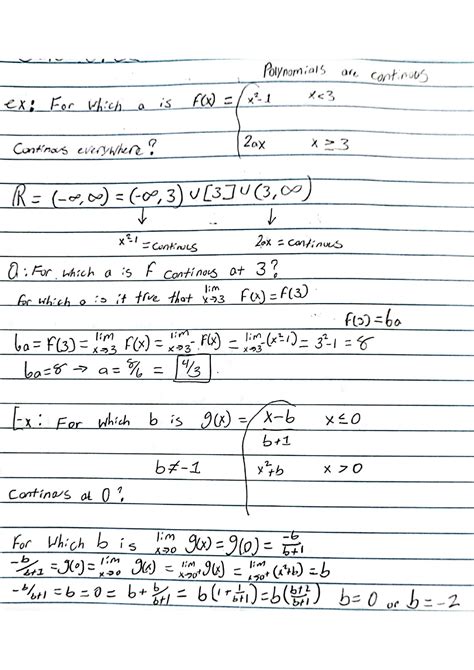 Polynomials are continuous
ex: For which a is f(x) = { x²-1 x<3
Continuous everywhere? 2ax x ≥ 3
ℝ = (-∞, ∞) = (-∞, 3) ∪ [3] ∪ (3, ∞)
↓ ↓
x²-1 = continuous 2ax = continuous
Q: For which a is f continuous at 3?
for which a is it true that lim x→3 f(x) = f(3)
f(3) = 6a
6a = f(3) = lim x→3 f(x) = lim x→3⁻ f(x) = lim x→3⁻ (x²-1) = 3²-1 = 8
6a = 8 → a = 8/6 = 4/3
Ex: For which b is g(x) = { x-b / b+1 x ≤ 0
b ≠ -1 x²+b x > 0
Continuous at 0?
For which b is lim x→0 g(x) = g(0) = -b/b+1
-b/b+1 = g(0) = lim x→0 g(x) = lim x→0⁺ g(x) = lim x→0⁺ (x²+b) = b
-b/b+1 = b = 0 = b + b/b+1 = b(1 + 1/b+1) = b(b+2/b+1) b = 0 or b = -2